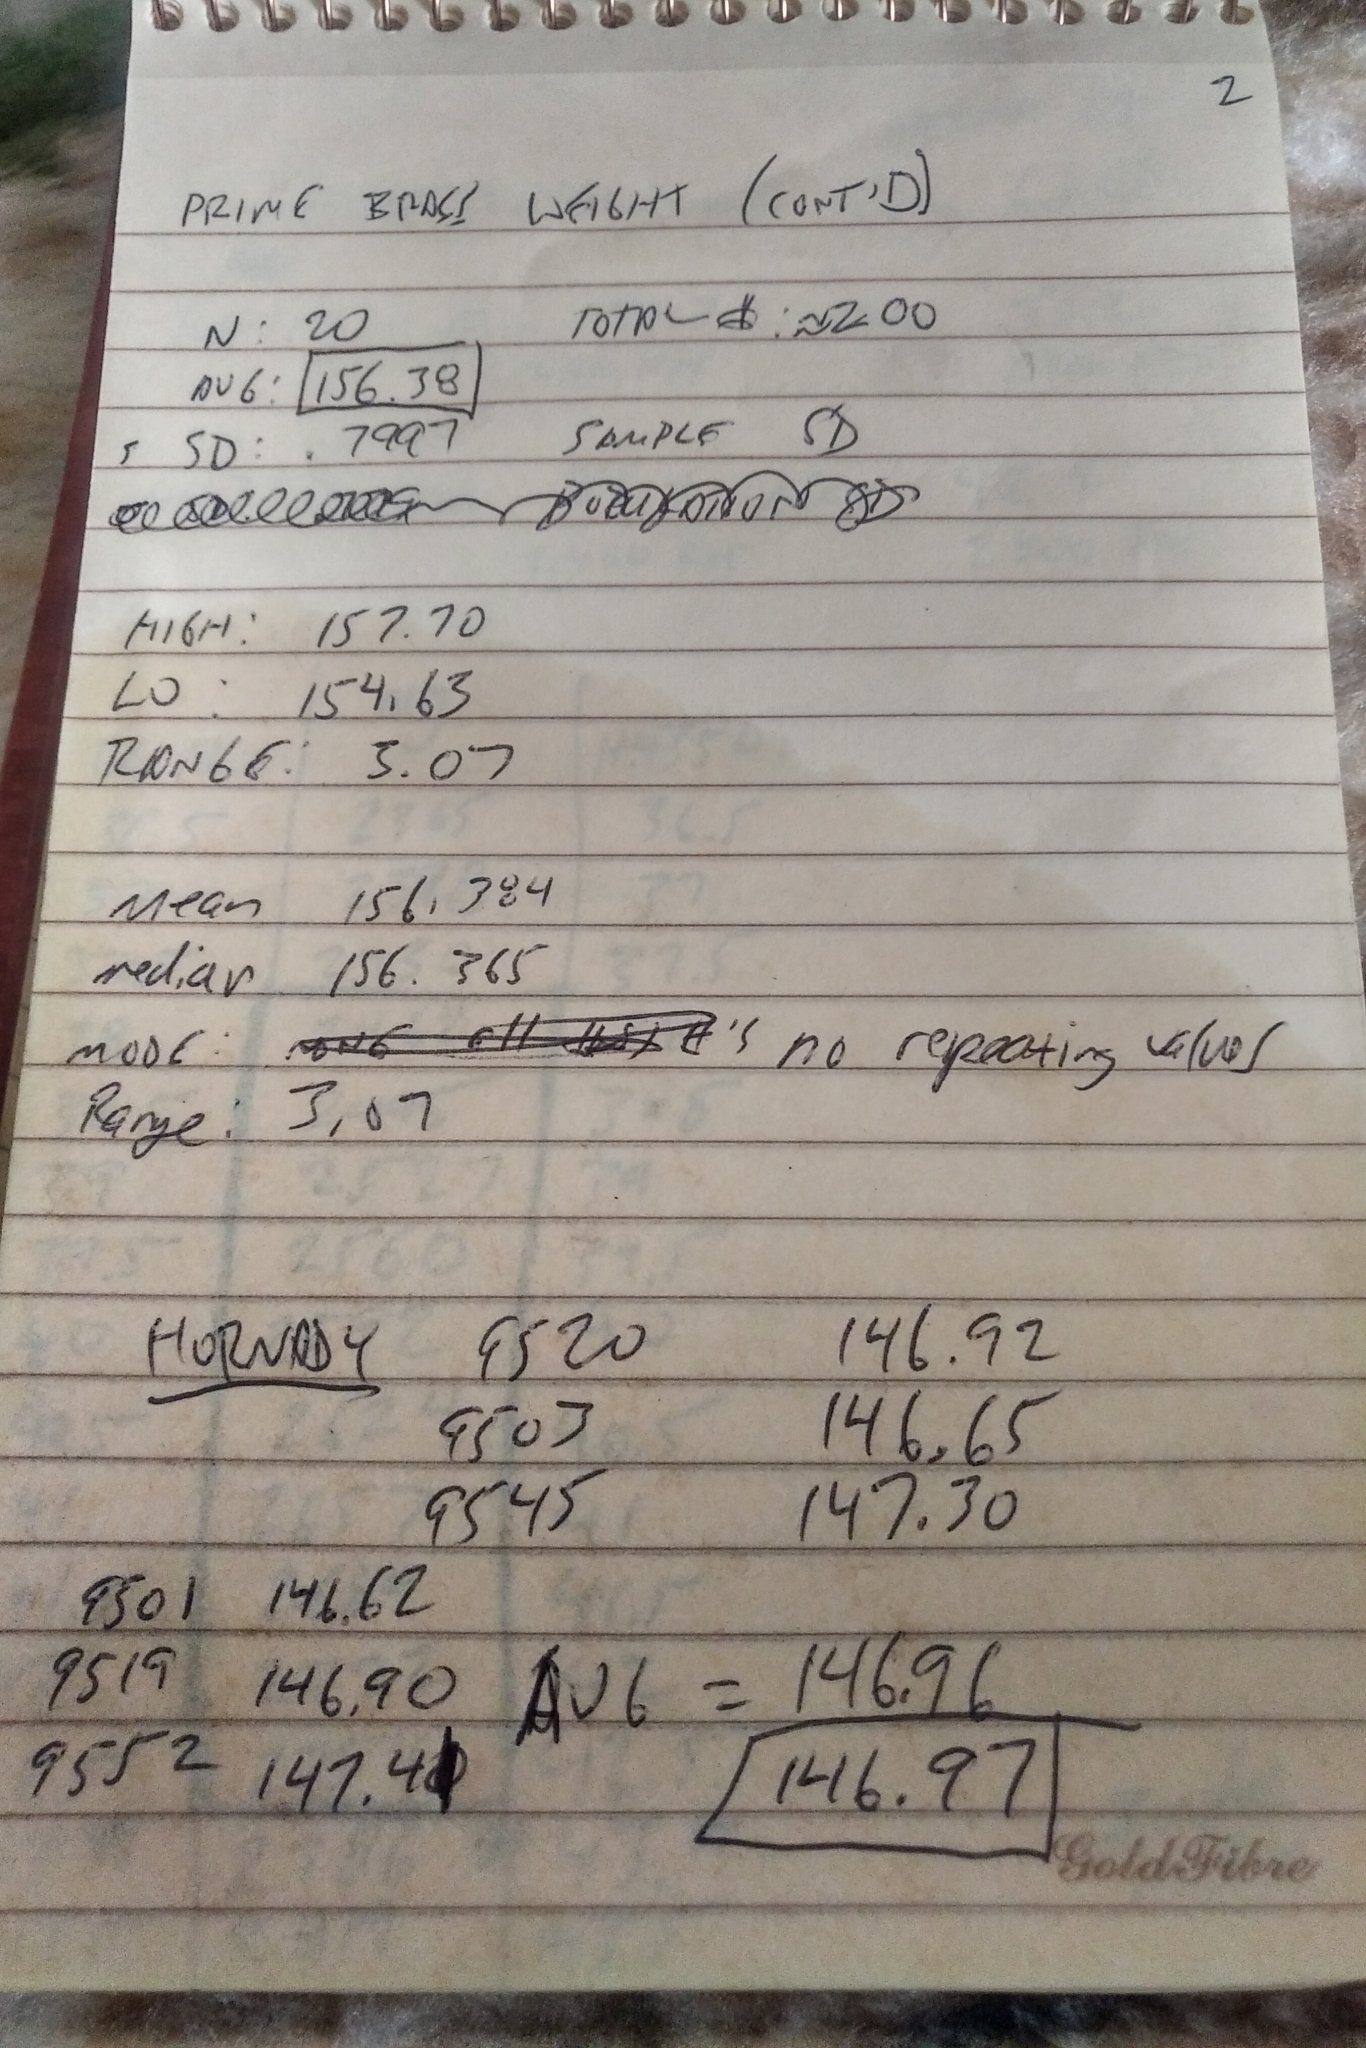 2
PRIME BRASS WEIGHT (CONT'D)
N: 20 TOTAL #: ≈200
AVG: 156.38
S SD: .7997 SAMPLE SD
POPULATION SD
HIGH: 157.70
LO: 154.63
RANGE: 3.07
Mean 156.384
median 156.365
MODE: NONE all #'s no repeating values
Range: 3.07
HORNADY 9520 146.92
9503 146.65
9545 147.30
9501 146.62
9519 146.90 AVG = 146.96
9552 147.41 146.97
GoldFibre